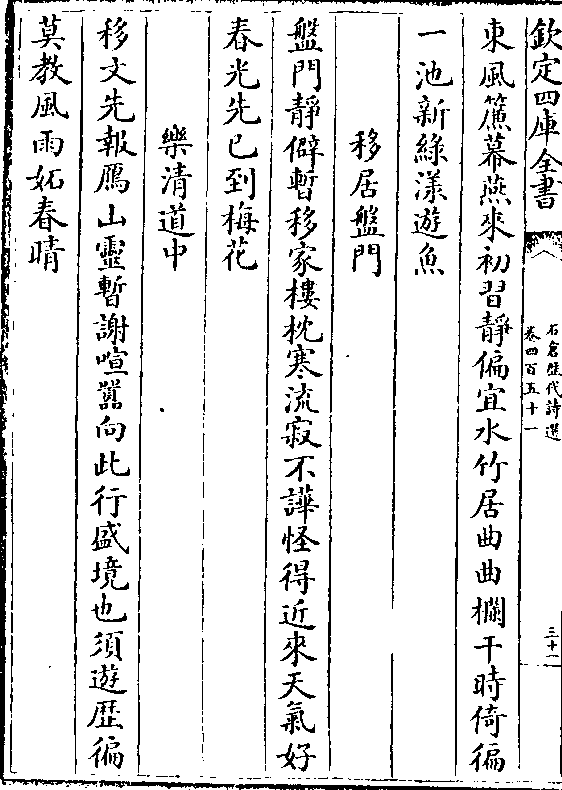 欽定四庫全書
石倉歷代詩選
卷四百五十一
三十一
東風簾幕燕來初習靜偏宜水竹居曲曲欄干時倚徧
一池新綠漾遊魚
移居盤門
盤門靜僻暫移家樓枕寒流寂不譁怪得近來天氣好
春光先已到梅花
樂清道中
移文先報鴈山靈暫謝喧囂向此行盛境也須遊歴徧
莫教風雨妬春晴